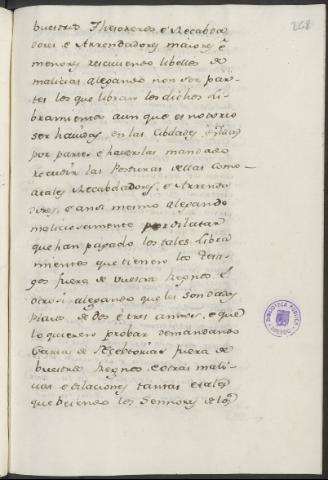 268
buestros Thesoreros, e Recabda
dores e Arrendadores maiores, e
menores rescuiendo libellos de
malicias alegando non ser par-
tes los que libran los dichos Li-
bramientos aun que es notorio
ser havidos en las Cibdades
por partes e hacerlas mandado
recudir las Posturas dellas como
a tales Recabdadores, e Arrenda
dores, e ansi mesmo alegando
maliciosamente por dilatar
que han pagado los tales Libra
mientos que tienen los
fuera de vuestro Regno. E
otrosi alegando que les son dados
plazos de dos e tres annos, e que
lo quieren probar demandando
Cartas de Recebtorias fuera de
buestro Regno, e otras mali-
cias e dilaciones tantas e tales
que beiendo los Sennores de los
BIBLIOTECA PUBLICA
TOLEDO